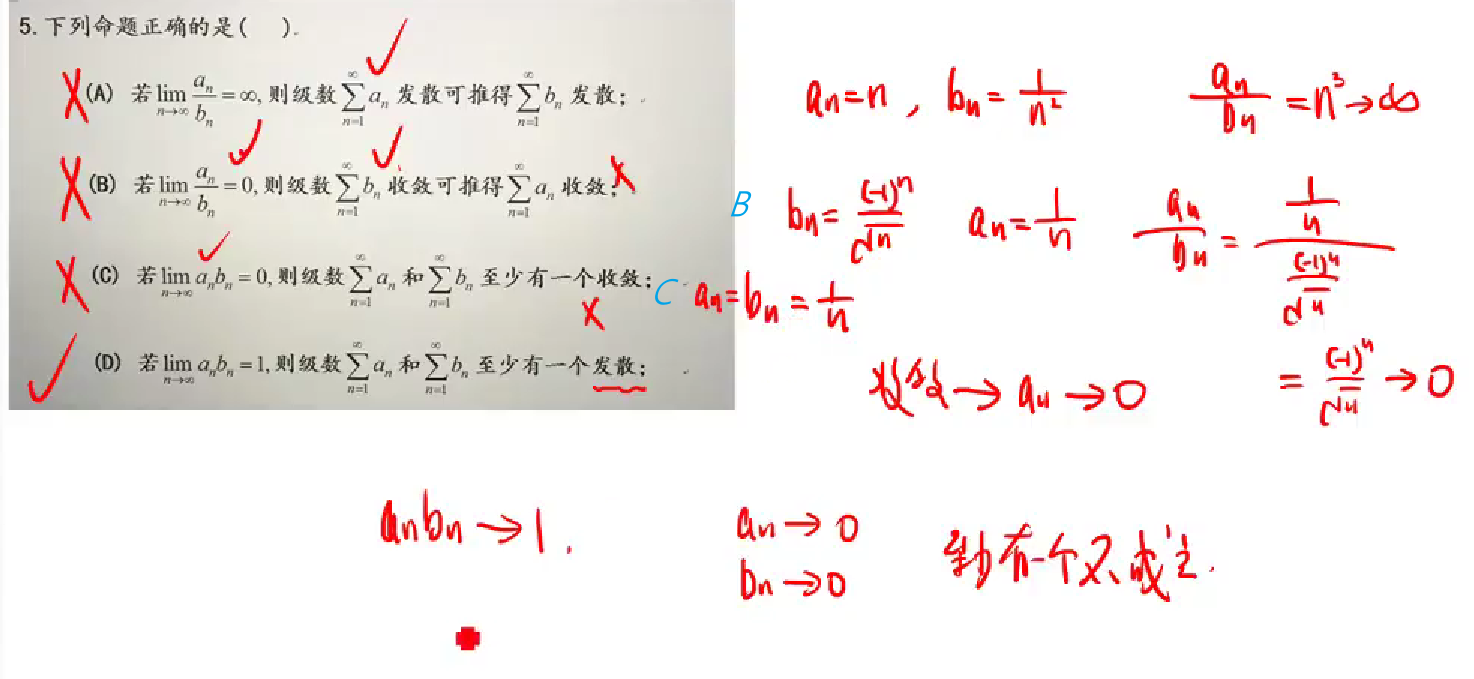 5. 下列命题正确的是(　).
(A) 若 lim_{n→∞} a_n/b_n = ∞, 则级数 ∑_{n=1}^{∞} a_n 发散可推得 ∑_{n=1}^{∞} b_n 发散;
(B) 若 lim_{n→∞} a_n/b_n = 0, 则级数 ∑_{n=1}^{∞} b_n 收敛可推得 ∑_{n=1}^{∞} a_n 收敛;
(C) 若 lim_{n→∞} a_n b_n = 0, 则级数 ∑_{n=1}^{∞} a_n 和 ∑_{n=1}^{∞} b_n 至少有一个收敛;
(D) 若 lim_{n→∞} a_n b_n = 1, 则级数 ∑_{n=1}^{∞} a_n 和 ∑_{n=1}^{∞} b_n 至少有一个发散;
a_n = n , b_n = 1/n² a_n/b_n = n³ → ∞
B b_n = (-1)^n/√n a_n = 1/n a_n/b_n = (1/n)/((-1)^n/√n)
C a_n = b_n = 1/n
= (-1)^n/√n → 0
收敛 → a_n → 0
a_n b_n → 1 .
a_n → 0
b_n → 0
至少有一个不成立.